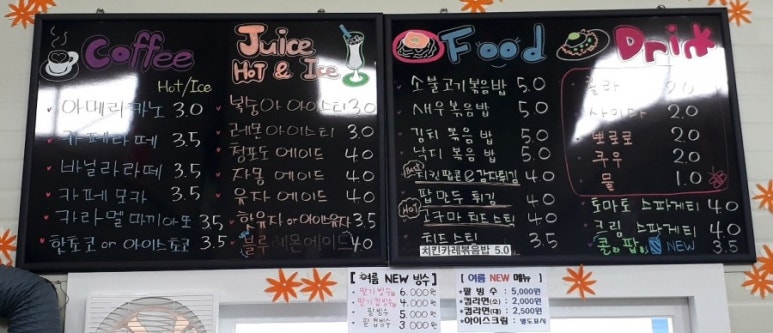 Coffee
Hot/Ice
아메리카노 3.0
카페라떼 3.5
바닐라라떼 3.5
카페모카 3.5
카라멜마끼아또 3.5
핫쵸코 or 아이스쵸코 3.5
Juice
HOT & ICE
복숭아 아이스티 3.0
레몬아이스티 3.0
청포도 에이드 4.0
자몽 에이드 4.0
유자 에이드 4.0
핫유자 or 아이스유자 3.5
블루레몬에이드 4.0
Food
소불고기볶음밥 5.0
새우볶음밥 5.0
김치볶음밥 5.0
낙지볶음밥 5.0
Best 치킨팝콘&감자튀김 4.0
팝만두튀김 4.0
HOT 고구마치드스틱 4.0
치드스틱 3.5
치킨카레볶음밥 5.0
Drink
콜라 2.0
사이다 2.0
뽀로로 2.0
쿠우 2.0
물 1.0
토마토 스파게티 4.0
크림 스파게티 4.0
콜라팝 NEW 3.5
여름 NEW 빙수
딸기빙수 6,000원
딸기컵빙수 4,000원
팥빙수 5,000원
팥컵빙수 3,000원
[ 여름 NEW 메뉴 ]
팥빙수 : 5,000원
컵라면(소) : 2,000원
컵라면(대) : 2,500원
아이스크림 : 별도표시